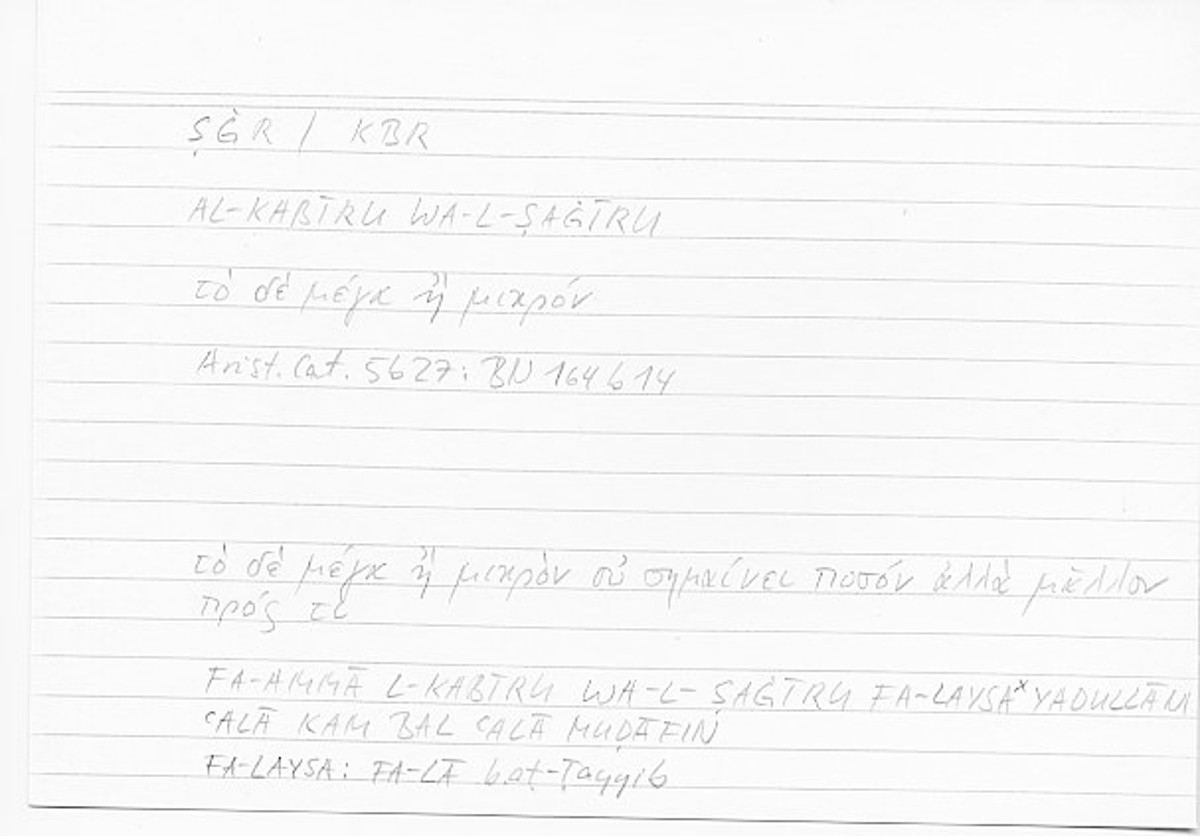 ṢĠR / KBR
AL-KABĪRU WA-L-ṢAĠĪRU
τὸ δὲ μέγα ἢ μικρόν
Arist. Cat. 5b27; BN 164b14
τὸ δὲ μέγα ἢ μικρὸν οὐ σημαίνει ποσόν ἀλλὰ μᾶλλον
πρός τι
FA-AMMĀ L-KABĪRU WA-L-ṢAĠĪRU FA-LAYSAˣ YADULLĀNI
ʿALĀ KAM BAL ʿALĀ MUḌĀFIN
FA-LAYSA: FA-LĀ b.aṭ-Ṭayyib